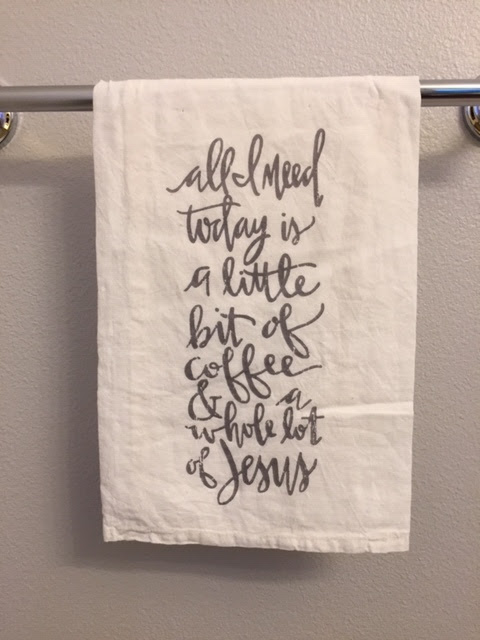 all I need
today is
a little
bit of
coffee
& a
whole lot
of Jesus